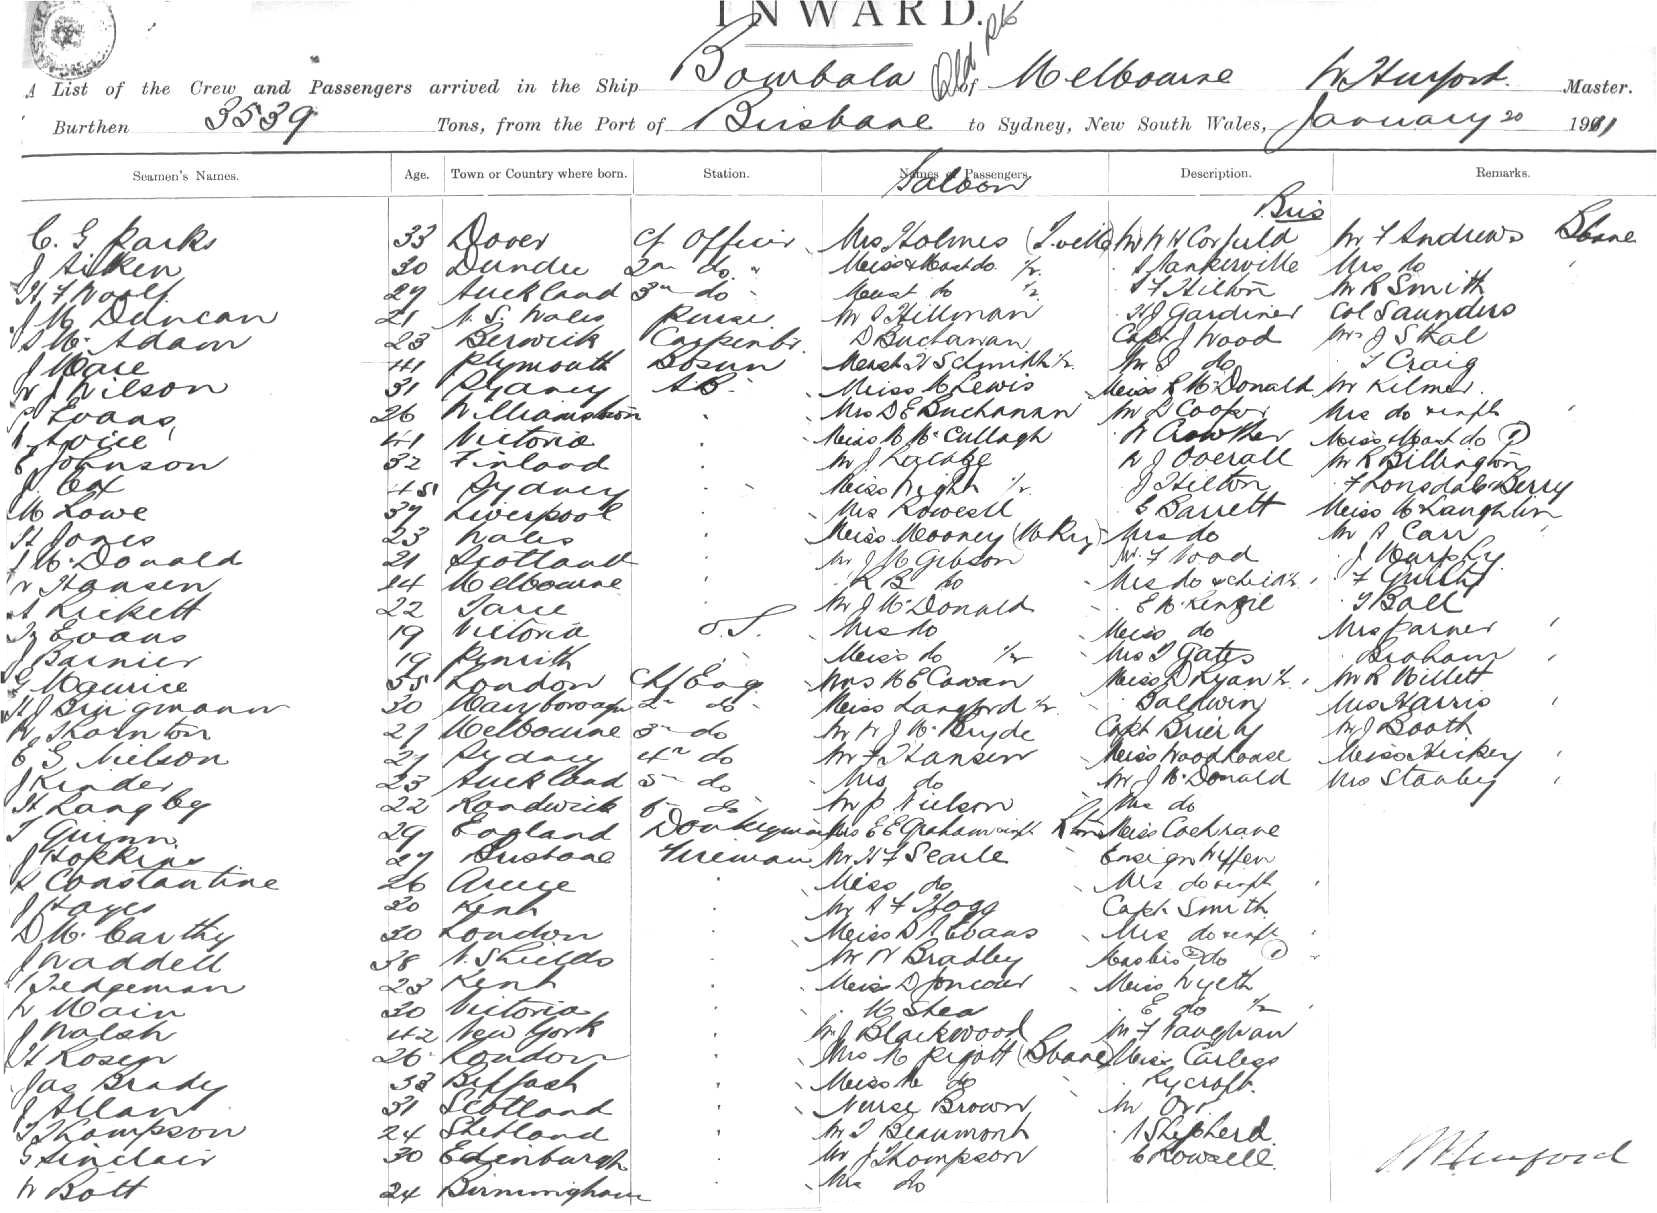 INWARD.
A List of the Crew and Passengers arrived in the Ship Bombala of Melbourne W Hurford. Master.
Burthen 3539 Tons, from the Port of Brisbane to Sydney, New South Wales, January 20 1911
Seamen's Names. Age. Town or Country where born. Station. Names of Passengers. Description. Remarks.
Saloon
Bris
C. G Parks 33 Dover Cf Officer Mrs Holmes Mr W H Corfield Mr F Andrews Bbane
J Aitken 30 Dundee 2n do " Miss & Mast do. 1/2. Tankerville Mrs do
H F Woolf 29 Auckland 3rd do Mast do 1/2 T F Hilton Mr R Smith
J Mc Duncan 21 N. S. Wales Purser Mr Hillman H J Gardiner Col Saunders
Mc Adam 23 Berwick Carpenter D Buchanan Capt J Wood Mr J Stal
J Mace 41 Plymouth Bosun Mast H Schmith 1/2. Mr J do T Craig
W J Wilson 31 Sydney AB. Miss M Lewis Miss R McDonald Mr Kilmer.
Evans 26 Williamstown Mrs D E Buchanan Mr Cooper Mrs do & inft
41 Victoria Miss McCullagh W Crowther Miss & Mast do
E Johnson 32 Finland Mr J W J Overall Mr R Billington
J. Cox 45 Sydney Miss 1/2. J Hilton F Lonsdale Berry
M Lowe 37 Liverpool Mrs Rowell E Barrett Miss McLaughlin
H Jones 23 Wales Miss Mooney (McKy) Mrs do Mr A Carr
McDonald 21 Scotland Mr J M Gibson Mr. F Wood J Murphy
W Hansen 44 Melbourne R B do Mrs do & child F
A Rickett 22 Taree Mr J McDonald E McKenzie T Ball
Evans 19 Victoria O.S. Mrs do Miss do Mrs Garner
J Barnier 19 Penrith Miss do 1/2 Mrs T Gates Graham
Maurice 35 London Chf Eng. Mrs M E Cowan Miss D Ryan 1/2. Mr R Willett
H J Brugmann 30 Maryborough 2n do Miss Langford 1/2. Baldwin Mrs Harris
W Thornton 27 Melbourne 3rd do Mr W J McBryde Capt Brierly Mr J Booth
E G Nielson 27 Sydney 4th do Mr F Hansen Miss Woodhouse Miss Hickey
J Kinder 23 Auckland 5th do Mrs do Mr J McDonald Mrs Stanley
H Langley 22 Randwick 6th do Mr P Nielson Mrs do
T Guinn. 29 England Donkeyman Mrs E E Graham & inft Miss Cochrane
J Hopkins 27 Brisbane Fireman Mr H F Searle Ensign Wiffen
Constantine 26 Greece Miss do Mrs do & inft
J Hayes 20 Kent Mr A F Hogg Capt Smith
D McCarthy 30 London Miss D A Evans Mrs do & inft
J Waddell 38 N. Shields Mr W Bradley Masters 2 do
Tedgeman 23 Kent Miss D Joncour Miss Wyeth
W Main 30 Victoria M Shea E do 1/2
J Walsh 42 New York Mr J Blackwood Mr F Vaughan
H Rosen 26 London Mrs M Pigott (Bbane) Miss Carless
Jas Brady 33 Belfast Miss M do Rycroft.
J Allan 31 Scotland Nurse Brown Mr Orr.
T Thompson 24 Shetland Mr T Beaumont A Shepherd.
G Sinclair 30 Edenburgh Mr J Thompson C Rowsell.
W Bott 24 Birmingham Mrs do
W Hurford